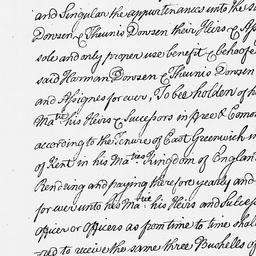 and Singular the appurtenances unto the s
Dowsen & Theunis Dowsen their Heirs & Ass
sole and only proper use benefit & behoofe
said Harman Dowsen & Theunis Dowsen
and Assignes forever, To bee holden of h
Ma.tie his Heirs & Successors in free & Comon
according to the Tenure of East Greenwich in
of Kent in his Ma.ties Kingdom of England
Rendring and paying therefore yearly and
for ever unto his Ma.tie his Heirs and Success
officer or officers as from time to time shall
to receive the same three Bushells of